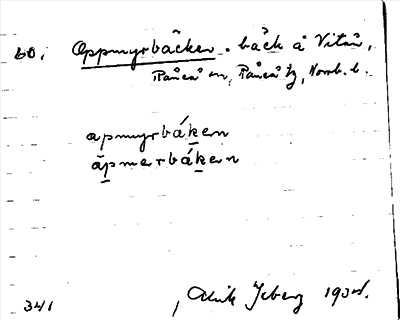 60. Oppmyrbäcken. bäck å Vitån,
Råneå sn, Råneå tg, Norrb. l.
apmyrbákern
ápmerbákern
341 Erik Isberg 1934.